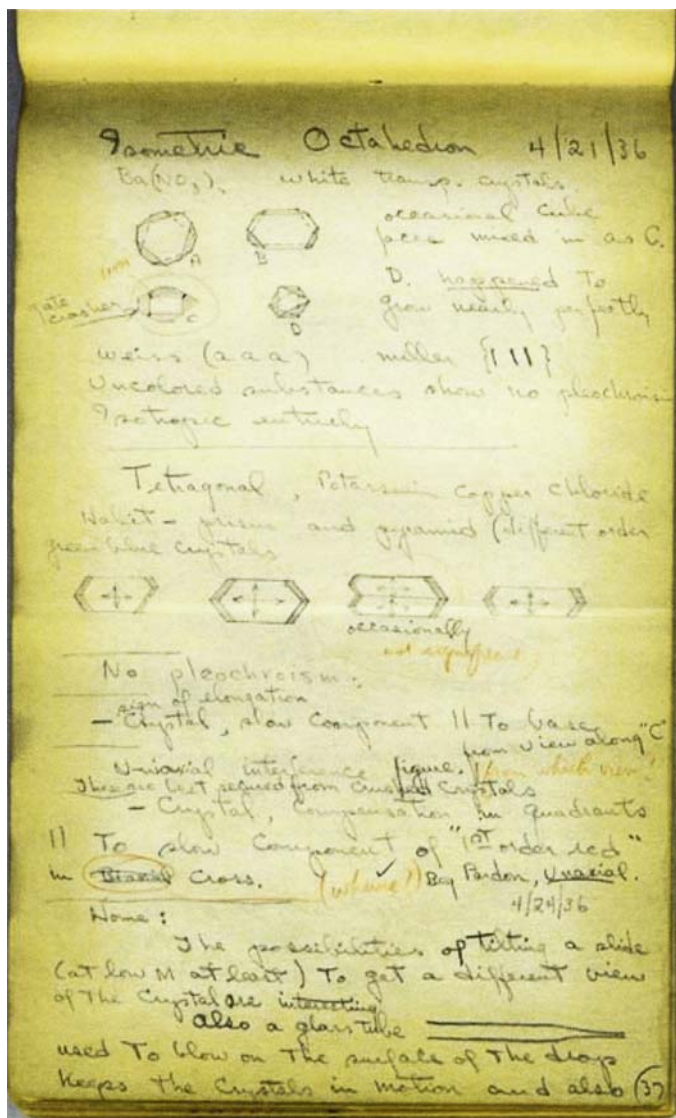 Isometric Octahedron 4/21/36
Ba(NO3)2 white transp. crystals.
occasional cube
faces mixed in as C.
A B
D. happened to
grow nearly perfectly
gate
crasher
C D
weiss (a a a) miller {111}
Uncolored substances show no pleochroism
Isotropic entirely
Tetragonal, Potassium Copper Chloride
Habit - prism and pyramid (different order
green blue crystals
occasionally
not significant
No pleochroism:
sign of elongation
- Crystal, slow component || To base
from view along "C"
Uniaxial interference figure. from which view?
These are best required from crushed crystals
- Crystal, Compensation in quadrants
|| To slow component of "1st order red"
in Biaxial Cross. (whume?) Beg Pardon, Uniaxial.
4/24/36
Home:
The possibilities of tilting a slide
(at low M at least) To get a different view
of The Crystal are interesting
also a glass tube
used To blow on The surface of The drop
keeps The Crystals in motion and also 37